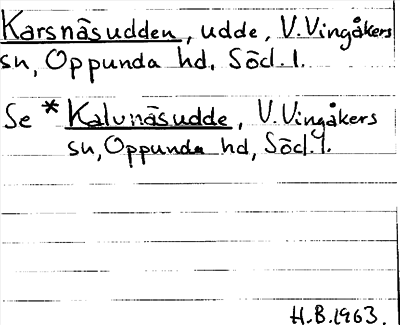 Karsnäsudden, udde, V. Vingåkers
sn, Oppunda hd, Södl. l.
Se * Kalvnäsudde, V. Vingåkers
sn, Oppunda hd, Södl. l.
H.B. 1963.